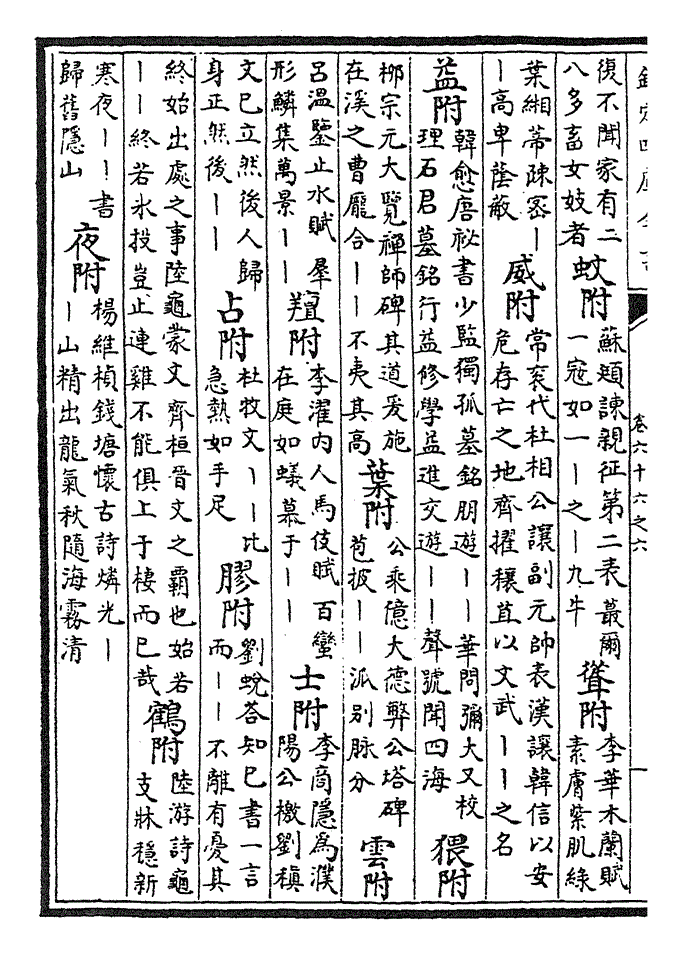 欽定四庫全書
卷六十六之六
一
復不聞家有二
八多畜女妓者
蚊附
蘇頲諫親征第二表蕞爾
一寇如一｜之｜九牛
聳附
李華木蘭賦
素膚紫肌綠
葉緗蒂疎密｜
｜高卑蔭蔽
威附
常袞代杜相公讓副元帥表漢讓韓信以安
危存亡之地齊擢穰苴以文武｜｜之名
益附
韓愈唐祕書少監獨孤墓銘朋遊｜｜華問彌大又校
理石君墓銘行益修學益進交遊｜｜聲號聞四海
猥附
栁宗元大覽禪師碑其道爰施
在溪之曹厖合｜｜不夷其高
葉附
公乘億大德弊公塔碑
苞披｜｜派别脉分
雲附
吕溫鑒止水賦犀
形鱗集萬景｜｜
羶附
李濯内人馬伎賦百蠻
在庭如蟻慕于｜｜
士附
李商隱為濮
陽公檄劉稹
文已立然後人歸
身正然後｜｜
占附
杜牧文｜｜比
急熱如手足
膠附
劉蛻答知已書一言
而｜｜不離有憂其
終始出處之事陸龜蒙文齊桓晉文之霸也始若
｜｜終若氷投豈止連雞不能俱上于棲而已哉
鶴附
陸游詩龜
支牀穩新
寒夜｜｜書
歸舊隱山
夜附
楊維楨錢塘懷古詩燐光｜
｜山精出龍氣秋隨海霧清